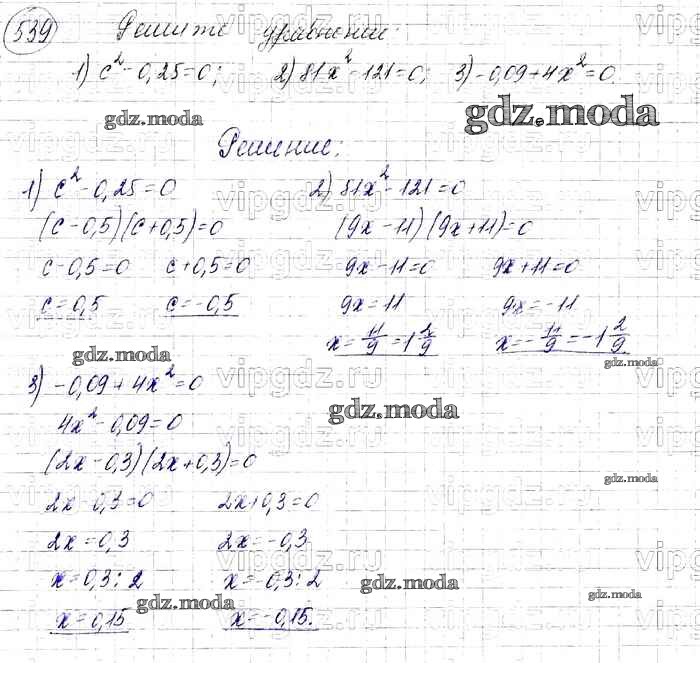 539 Решите уравнение:
1) c² - 0,25 = 0; 2) 81x² - 121 = 0; 3) -0,09 + 4x² = 0.
gdz.moda
gdz.moda
Решение:
1) c² - 0,25 = 0
(c - 0,5)(c + 0,5) = 0
c - 0,5 = 0 c + 0,5 = 0
c = 0,5 c = -0,5
2) 81x² - 121 = 0
(9x - 11)(9x + 11) = 0
9x - 11 = 0 9x + 11 = 0
9x = 11 9x = -11
x = 11/9 = 1 2/9 x = -11/9 = -1 2/9
gdz.moda
gdz.moda
3) -0,09 + 4x² = 0
4x² - 0,09 = 0
gdz.moda
(2x - 0,3)(2x + 0,3) = 0
gdz.moda
2x - 0,3 = 0 2x + 0,3 = 0
2x = 0,3 2x = -0,3
x = 0,3 : 2 x = -0,3 : 2
gdz.moda
gdz.moda
gdz.moda
x = 0,15 x = -0,15.
vipgdz.ru
vipgdz.ru
vipgdz.ru
vipgdz.ru
vipgdz.ru
vipgdz.ru